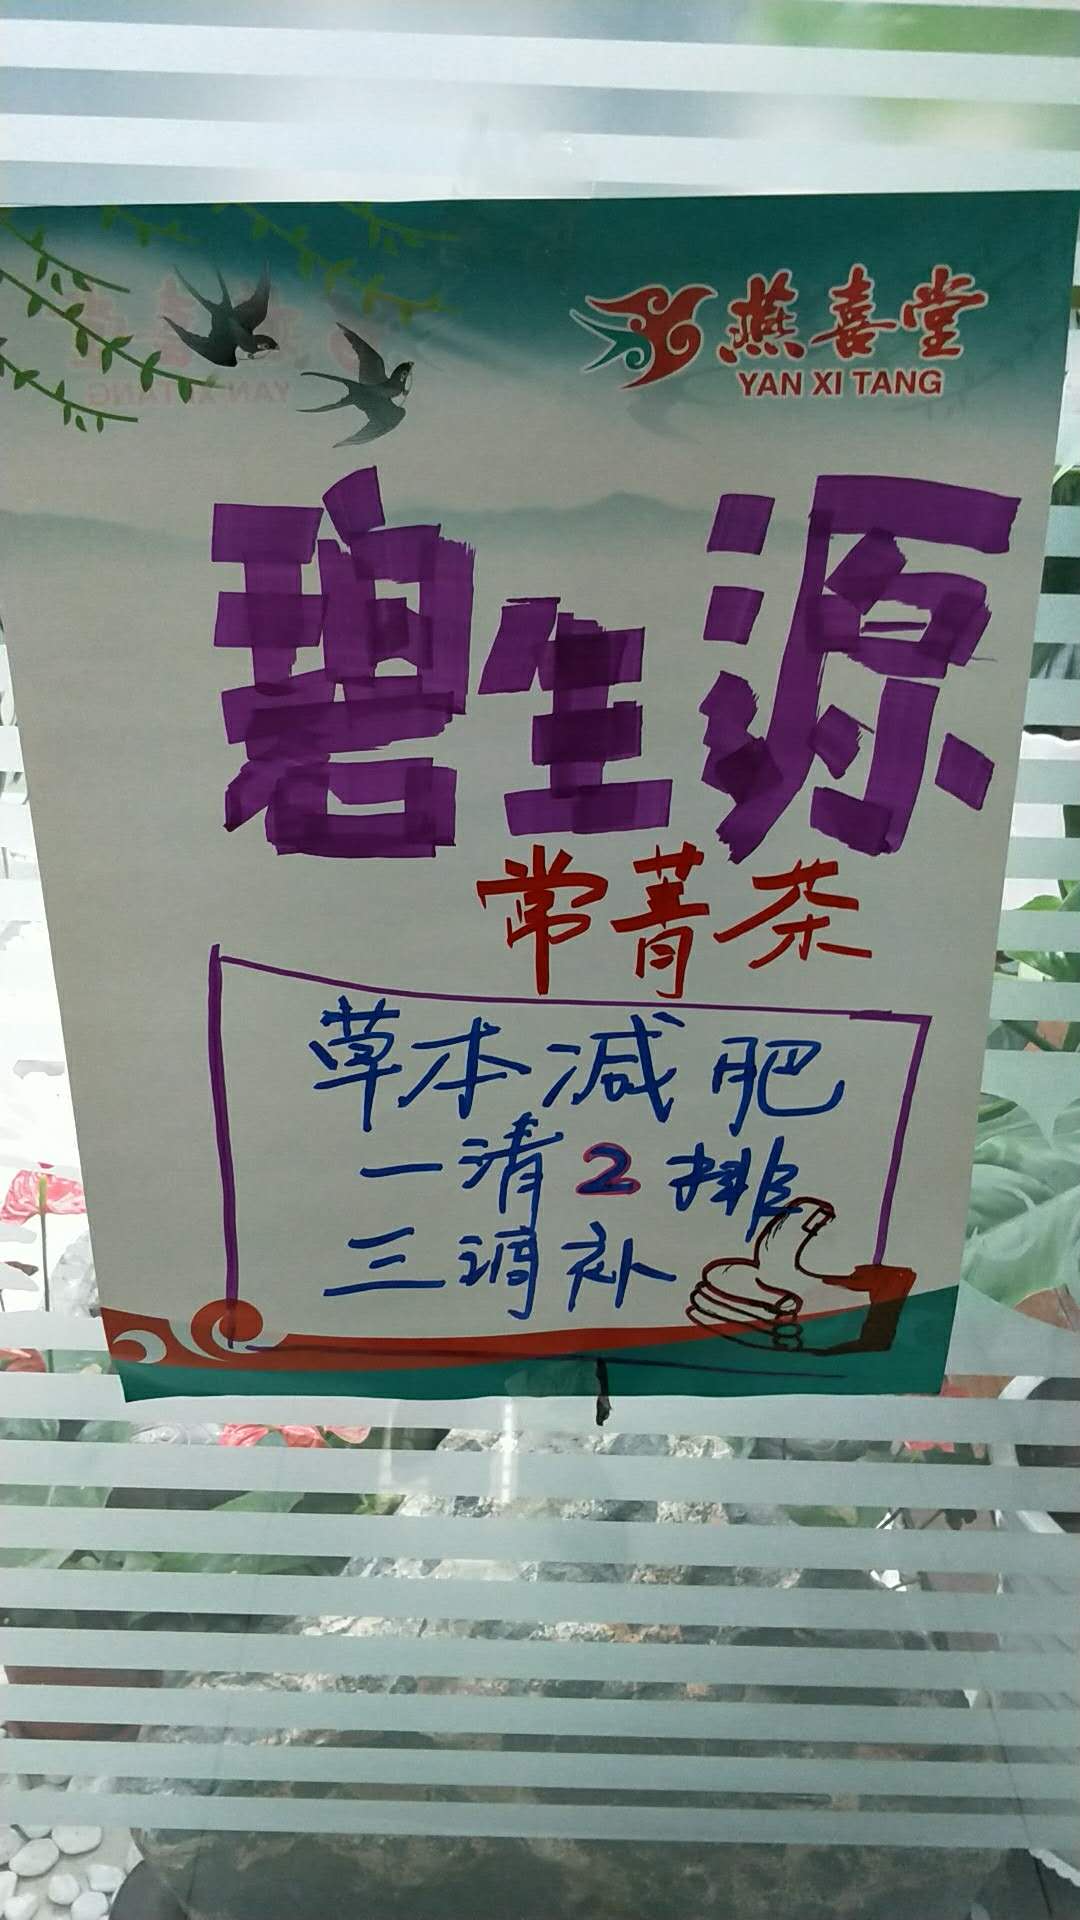 燕喜堂
YAN XI TANG
碧生源
常菁茶
草本减肥
一清2排
三调补